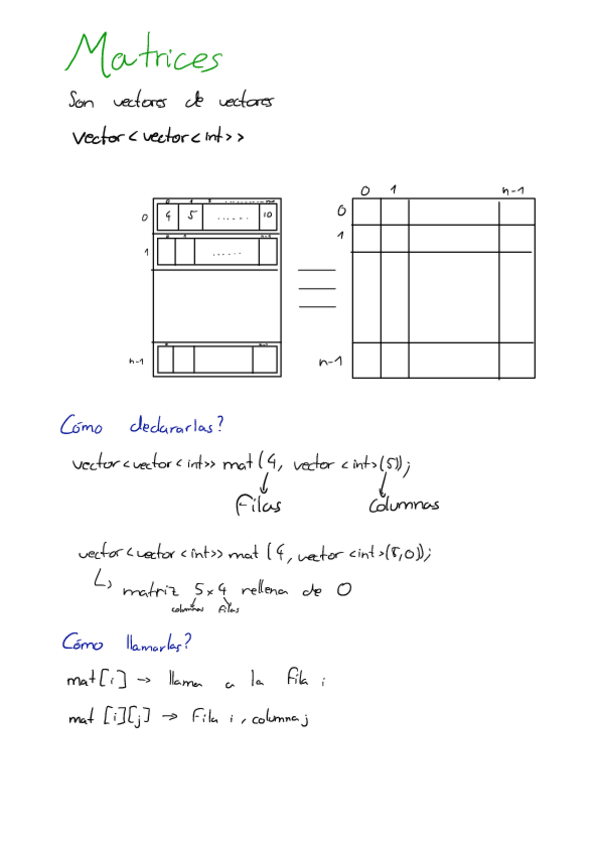 Matrices
Son vectores de vectores
vector<vector<int>>
0 1 n-1
0 4 5 ...... 10 0
1 ...... 1
n-1 n-1
Cómo declararlas?
vector<vector<int>> mat(4, vector<int>(5));
Filas Columnas
vector<vector<int>> mat(4, vector<int>(5,0));
↳ matriz 5x4 rellena de 0
columnas Filas
Cómo llamarlas?
mat[i] → llama a la fila i
mat[i][j] → Fila i, columna j